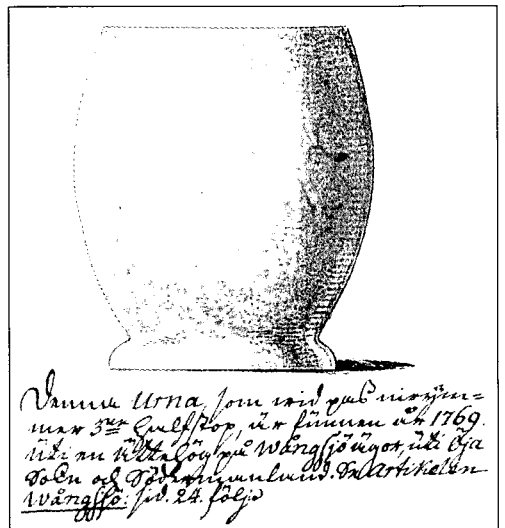 Denna Urna, som wid pas inrym=
mer 3ne halfstop, är funnen år 1769.
uti en ättehög på Wångsjö ägor, uti Öja
Sokn och Södermanland. Se Artikelen
Wångsjö: sid. 24. följ.